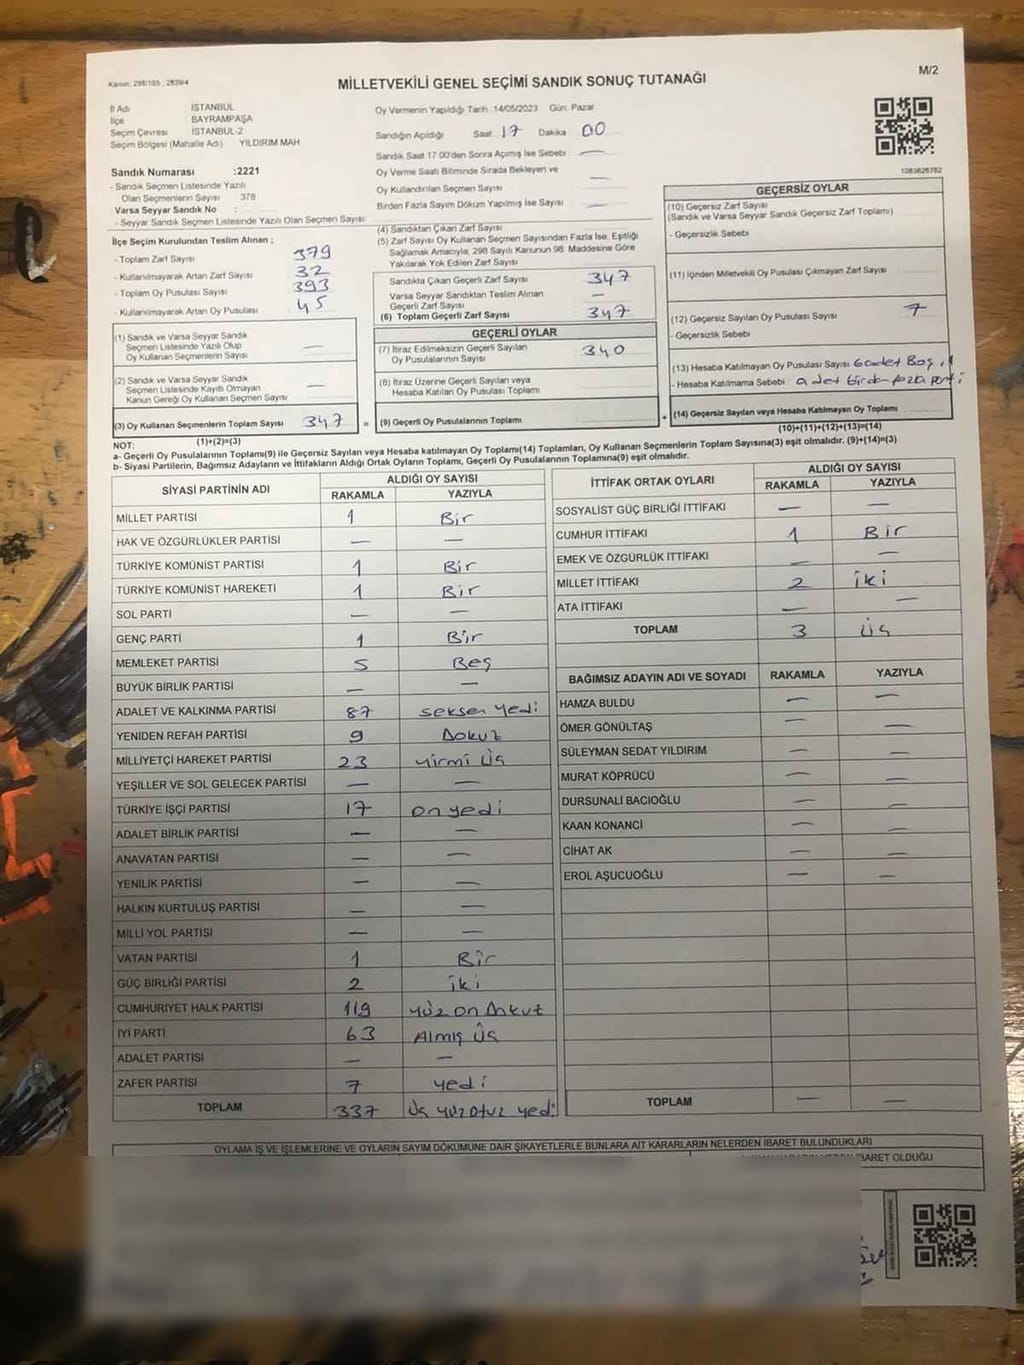 Kanun: 298/105 , 2839/4
MİLLETVEKİLİ GENEL SEÇİMİ SANDIK SONUÇ TUTANAĞI
M/2
İl Adı İSTANBUL
İlçe BAYRAMPAŞA
Seçim Çevresi İSTANBUL-2
Seçim Bölgesi (Mahalle Adı) YILDIRIM MAH
Oy Vermenin Yapıldığı Tarih: 14/05/2023 Gün: Pazar
Sandığın Açıldığı Saat 17 Dakika : 00
Sandık Saat 17:00'den Sonra Açımış İse Sebebi : —
Oy Verme Saati Bitiminde Sırada Bekleyen ve
Oy Kullandırılan Seçmen Sayısı —
Birden Fazla Sayım Döküm Yapılmış İse Sayısı : —
1083626762
Sandık Numarası :2221
- Sandık Seçmen Listesinde Yazılı
Olan Seçmenlerin Sayısı 378
Varsa Seyyar Sandık No :
- Seyyar Sandık Seçmen Listesinde Yazılı Olan Seçmen Sayısı
İlçe Seçim Kurulundan Teslim Alınan ;
- Toplam Zarf Sayısı 379
- Kullanılmayarak Artan Zarf Sayısı 32
- Toplam Oy Pusulası Sayısı 393
- Kullanılmayarak Artan Oy Pusulası 45
(1) Sandık ve Varsa Seyyar Sandık
Seçmen Listesinde Yazılı Olup
Oy Kullanan Seçmenlerin Sayısı —
(2) Sandık ve Varsa Seyyar Sandık
Seçmen Listesinde Kayıtlı Olmayan
Kanun Gereği Oy Kullanan Seçmen Sayısı —
(3) Oy Kullanan Seçmenlerin Toplam Sayısı 347 =
(1)+(2)=(3)
(4) Sandıktan Çıkan Zarf Sayısı
(5) Zarf Sayısı Oy Kullanan Seçmen Sayısından Fazla İse, Eşitliği
Sağlamak Amacıyla, 298 Sayılı Kanunun 98. Maddesine Göre
Yakılarak Yok Edilen Zarf Sayısı
Sandıkta Çıkan Geçerli Zarf Sayısı 347
Varsa Seyyar Sandıktan Teslim Alınan
Geçerli Zarf Sayısı —
(6) Toplam Geçerli Zarf Sayısı 347
GEÇERLİ OYLAR
(7) İtiraz Edilmeksizin Geçerli Sayılan
Oy Pusulalarının Sayısı 340
(8) İtiraz Üzerine Geçerli Sayılan veya
Hesaba Katılan Oy Pusulaları Toplamı
(9) Geçerli Oy Pusulalarının Toplamı +
GEÇERSİZ OYLAR
(10) Geçersiz Zarf Sayısı
(Sandık ve Varsa Seyyar Sandık Geçersiz Zarf Toplamı)
- Geçersizlik Sebebi
(11) İçinden Milletvekili Oy Pusulası Çıkmayan Zarf Sayısı
(12) Geçersiz Sayılan Oy Pusulası Sayısı 7
- Geçersizlik Sebebi
(13) Hesaba Katılmayan Oy Pusulası Sayısı 6 adet Boş, 1
- Hesaba Katılmama Sebebi : adet birden fazla parti
(14) Geçersiz Sayılan veya Hesaba Katılmayan Oy Toplamı
(10)+(11)+(12)+(13)=(14)
NOT:
a- Geçerli Oy Pusulalarının Toplamı(9) ile Geçersiz Sayılan veya Hesaba katılmayan Oy Toplamı(14) Toplamları, Oy Kullanan Seçmenlerin Toplam Sayısına(3) eşit olmalıdır. (9)+(14)=(3)
b- Siyasi Partilerin, Bağımsız Adayların ve İttifakların Aldığı Ortak Oyların Toplamı, Geçerli Oy Pusulalarının Toplamına(9) eşit olmalıdır.
SİYASİ PARTİNİN ADI ALDIĞI OY SAYISI
RAKAMLA YAZIYLA
MİLLET PARTİSİ 1 Bir
HAK VE ÖZGÜRLÜKLER PARTİSİ — —
TÜRKİYE KOMÜNİST PARTİSİ 1 Bir
TÜRKİYE KOMÜNİST HAREKETİ 1 Bir
SOL PARTİ — —
GENÇ PARTİ 1 Bir
MEMLEKET PARTİSİ 5 Beş
BÜYÜK BİRLİK PARTİSİ — —
ADALET VE KALKINMA PARTİSİ 87 seksen yedi
YENİDEN REFAH PARTİSİ 9 Dokuz
MİLLİYETÇİ HAREKET PARTİSİ 23 yirmi üç
YEŞİLLER VE SOL GELECEK PARTİSİ — —
TÜRKİYE İŞÇİ PARTİSİ 17 on yedi
ADALET BİRLİK PARTİSİ — —
ANAVATAN PARTİSİ — —
YENİLİK PARTİSİ — —
HALKIN KURTULUŞ PARTİSİ — —
MİLLİ YOL PARTİSİ — —
VATAN PARTİSİ 1 Bir
GÜÇ BİRLİĞİ PARTİSİ 2 iki
CUMHURİYET HALK PARTİSİ 119 yüz on dokuz
İYİ PARTİ 63 Almış üç
ADALET PARTİSİ — —
ZAFER PARTİSİ 7 yedi
TOPLAM 337 üç yüz otuz yedi
İTTİFAK ORTAK OYLARI ALDIĞI OY SAYISI
RAKAMLA YAZIYLA
SOSYALİST GÜÇ BİRLİĞİ İTTİFAKI — —
CUMHUR İTTİFAKI 1 Bir
EMEK VE ÖZGÜRLÜK İTTİFAKI — —
MİLLET İTTİFAKI 2 iki
ATA İTTİFAKI — —
TOPLAM 3 üç
BAĞIMSIZ ADAYIN ADI VE SOYADI RAKAMLA YAZIYLA
HAMZA BULDU — —
ÖMER GÖNÜLTAŞ — —
SÜLEYMAN SEDAT YILDIRIM — —
MURAT KÖPRÜCÜ — —
DURSUNALİ BACIOĞLU — —
KAAN KONANCİ — —
CİHAT AK — —
EROL AŞUCUOĞLU — —
TOPLAM — —
OYLAMA İŞ VE İŞLEMLERİNE VE OYLARIN SAYIM DÖKÜMÜNE DAİR ŞİKAYETLERLE BUNLARA AİT KARARLARIN NELERDEN İBARET BULUNDUKLARI
İBARET OLDUĞU